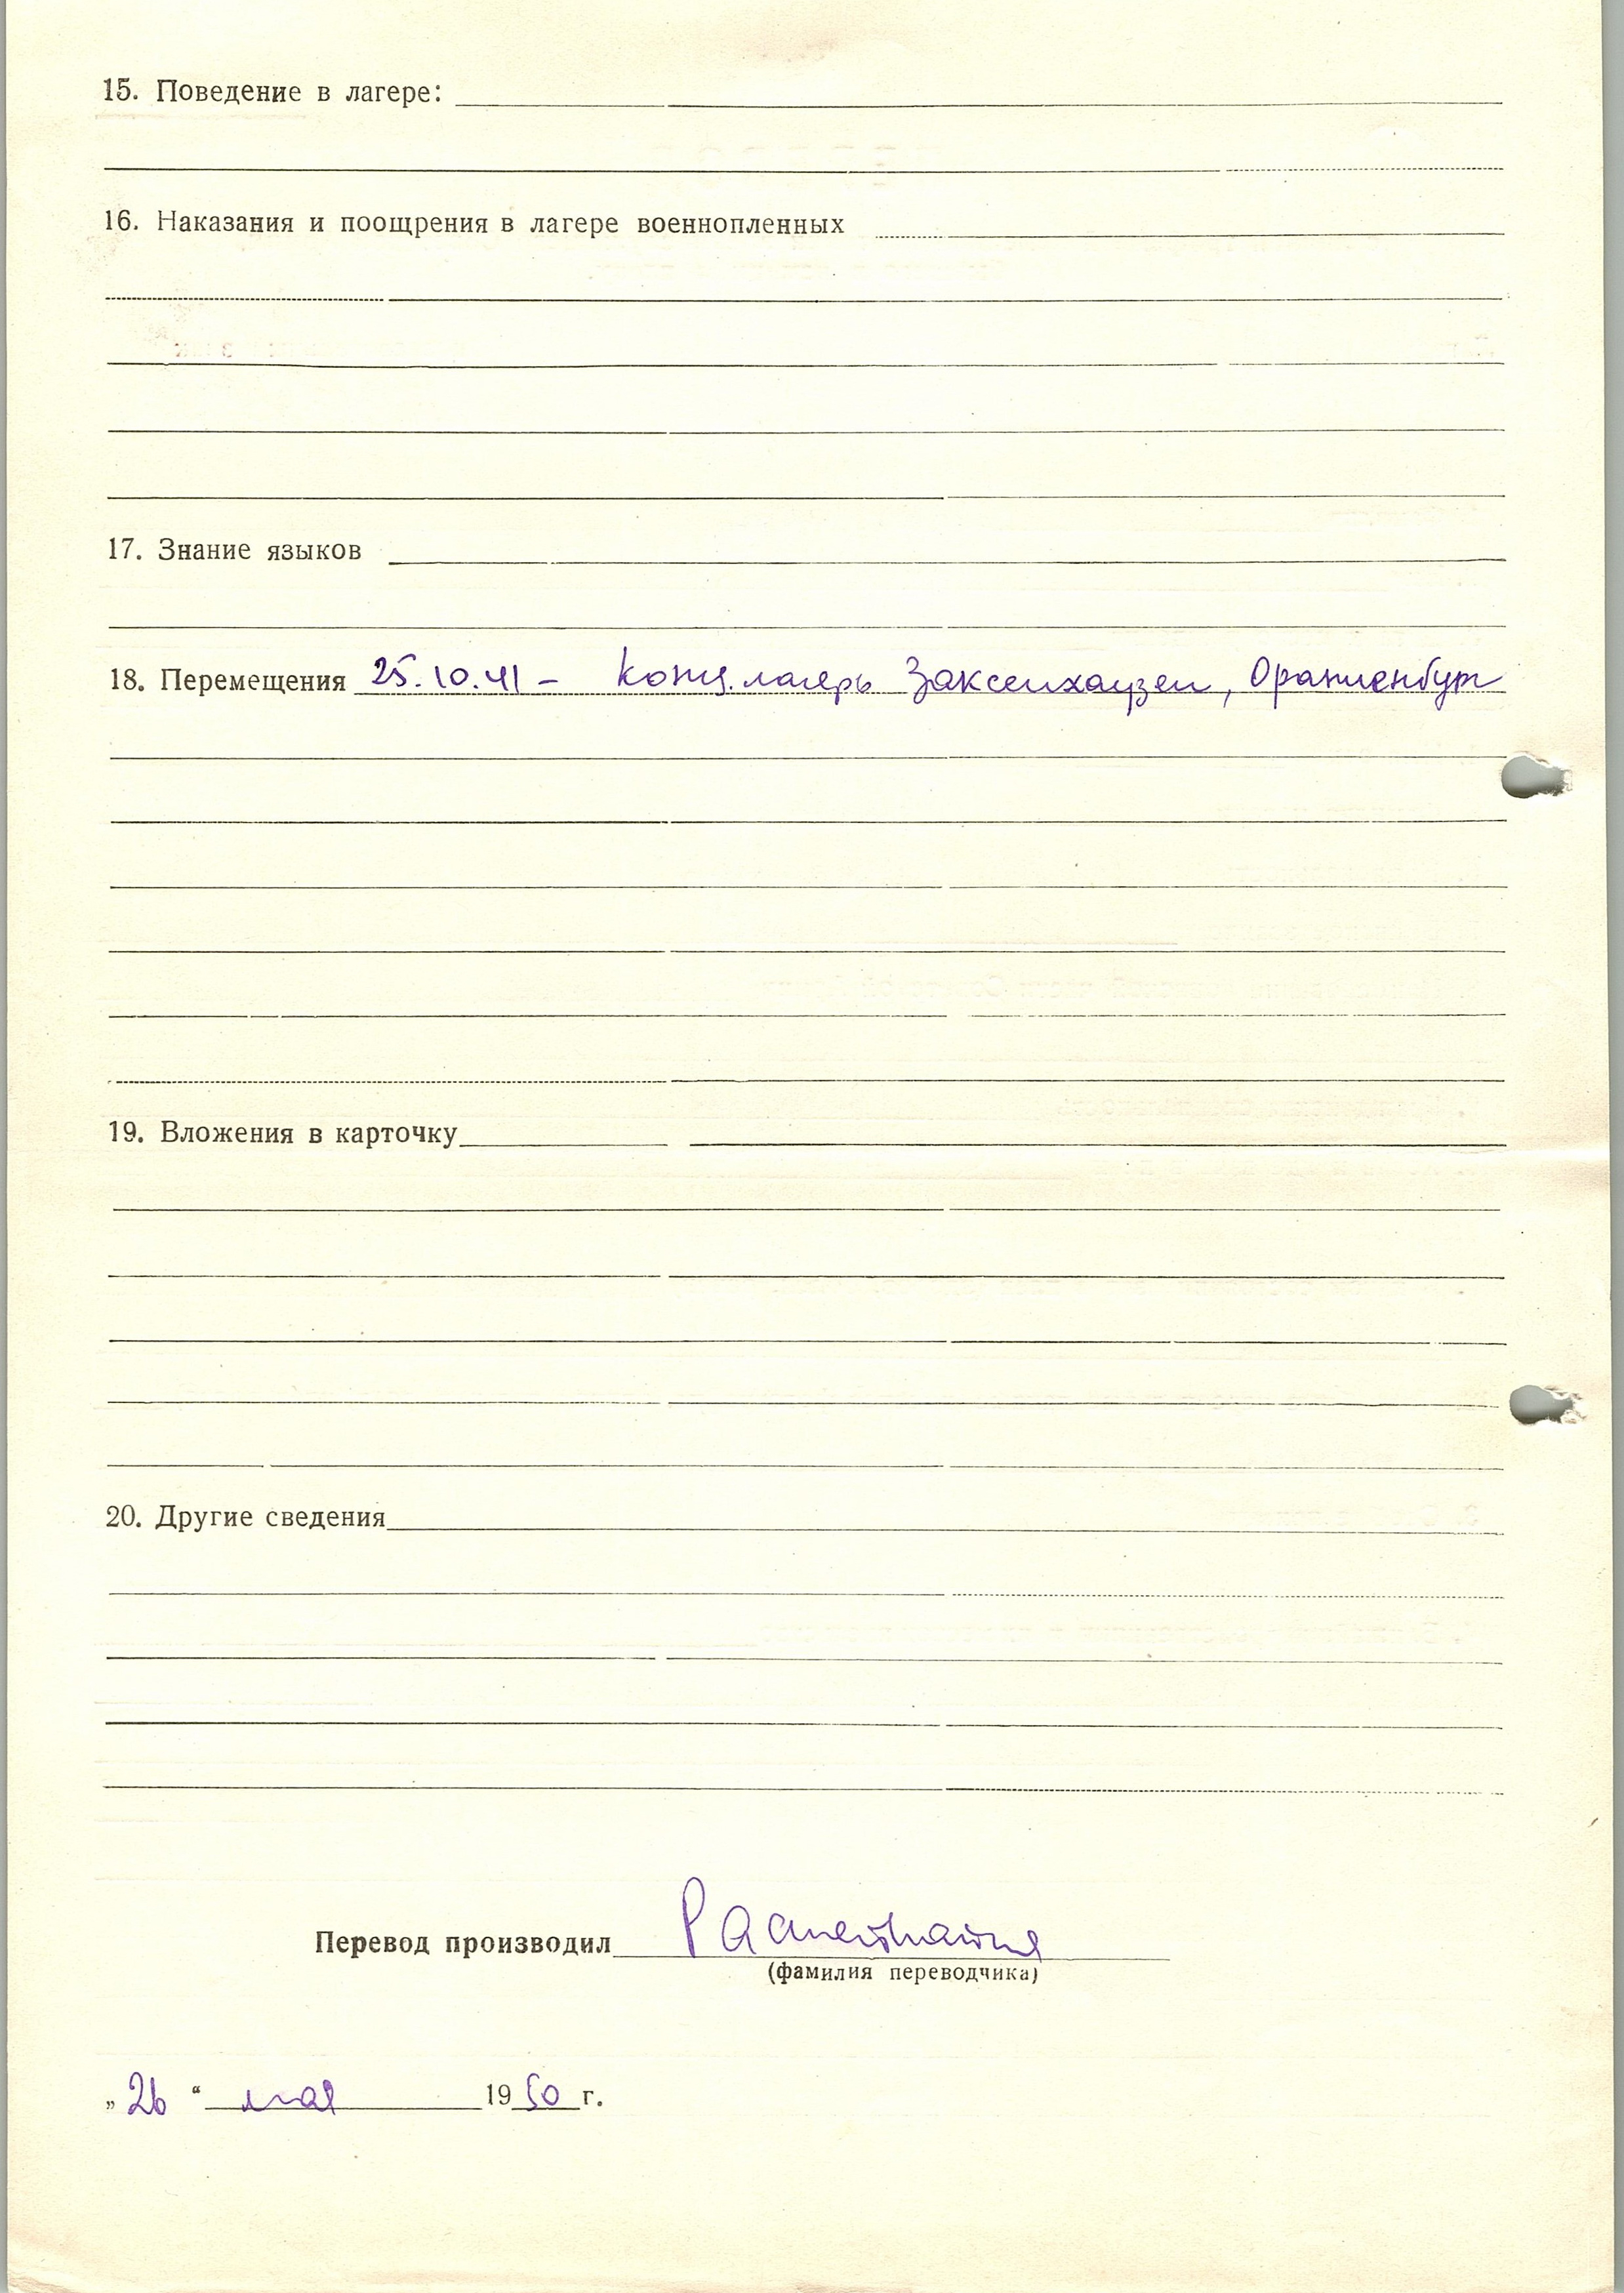 15. Поведение в лагере:
16. Наказания и поощрения в лагере военнопленных
17. Знание языков
18. Перемещения 25.10.41 – Конц.лагерь Заксенхаузен, Ораниенбург
19. Вложения в карточку
20. Другие сведения
Перевод производил
(фамилия переводчика)
„26“ мая 1950 г.